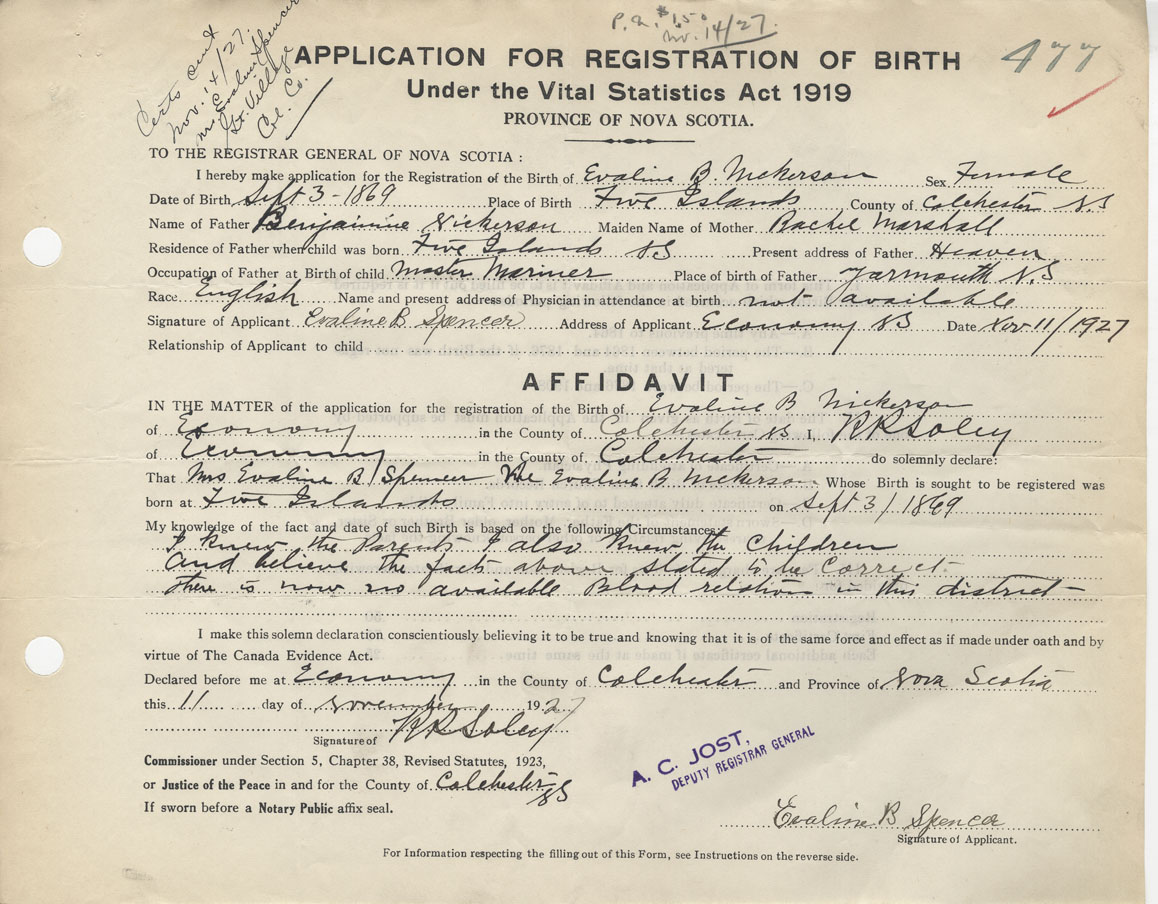 P.A. $1.50
Nov. 14/27.
477
Certs sent
Nov. 14/27.
Mrs Evaline Spencer
Village
Col. Co.
APPLICATION FOR REGISTRATION OF BIRTH
Under the Vital Statistics Act 1919
PROVINCE OF NOVA SCOTIA.
TO THE REGISTRAR GENERAL OF NOVA SCOTIA :
I hereby make application for the Registration of the Birth of Evaline B. Nickerson Sex Female
Date of Birth Sept 3 - 1869 Place of Birth Five Islands County of Colchester N.S
Name of Father Benjamine Nickerson Maiden Name of Mother Rachel Marshall
Residence of Father when child was born Five Islands NS Present address of Father Heaven
Occupation of Father at Birth of child Master Mariner Place of birth of Father Yarmouth N.S
Race English Name and present address of Physician in attendance at birth not available
Signature of Applicant Evaline B Spencer Address of Applicant Economy NS Date Nov 11/1927
Relationship of Applicant to child
AFFIDAVIT
IN THE MATTER of the application for the registration of the Birth of Evaline B Nickerson
of Economy in the County of Colchester NS I, RR Soley
of Economy in the County of Colchester do solemnly declare:
That Mrs Evaline B Spencer Nee Evaline B Nickerson Whose Birth is sought to be registered was
born at Five Islands on Sept 3/1869
My knowledge of the fact and date of such Birth is based on the following Circumstances:
I knew the Parents I also knew the Children
And believe the facts above stated to be Correct
there is now no available Blood relation in this district
I make this solemn declaration conscientiously believing it to be true and knowing that it is of the same force and effect as if made under oath and by
virtue of The Canada Evidence Act.
Declared before me at Economy in the County of Colchester and Province of Nova Scotia
this 11 day of November 1927
Signature of RR Soley
Commissioner under Section 5, Chapter 38, Revised Statutes, 1923,
or Justice of the Peace in and for the County of Colchester NS
If sworn before a Notary Public affix seal.
A. C. JOST,
DEPUTY REGISTRAR GENERAL
Evaline B Spencer
Signature of Applicant.
For Information respecting the filling out of this Form, see Instructions on the reverse side.